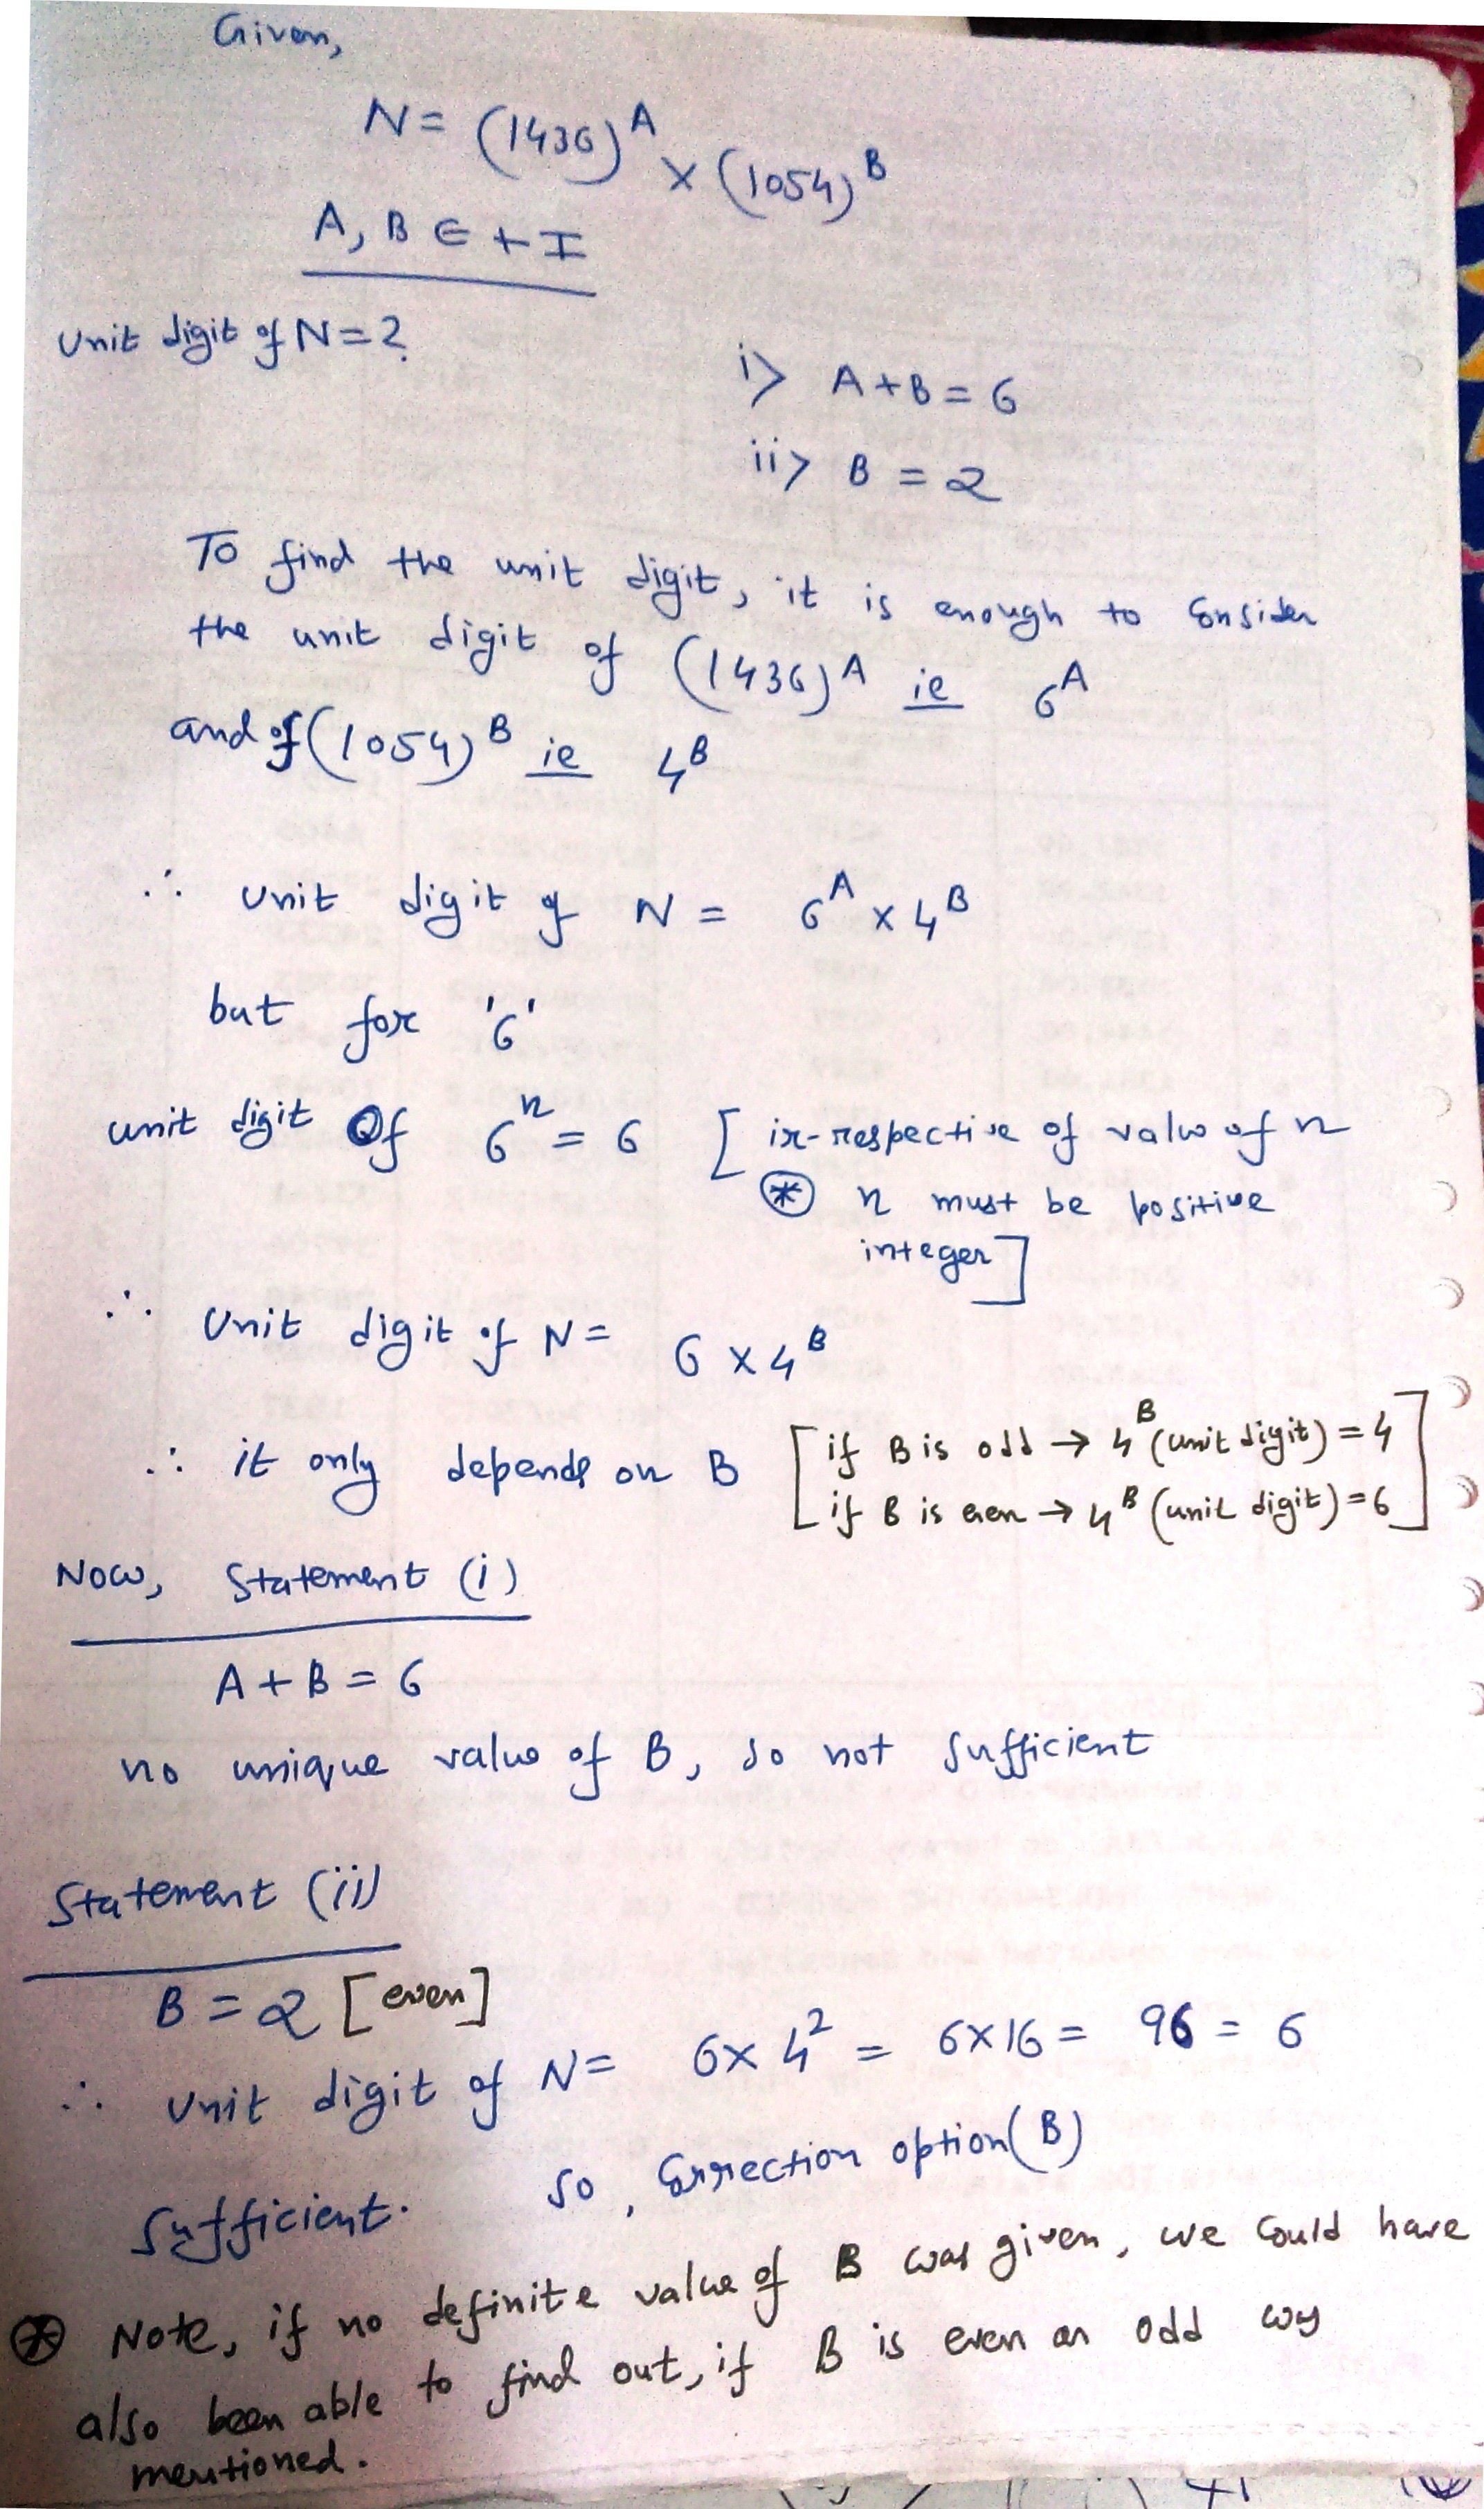 Given,
N = (1436)^A × (1054)^B
A, B ∈ + I
Unit digit of N = ?
i> A + B = 6
ii> B = 2
To find the unit digit, it is enough to consider
the unit digit of (1436)^A ie 6^A
and of (1054)^B ie 4^B
∴ Unit digit of N = 6^A × 4^B
but for '6'
unit digit Of 6^n = 6 [ ir-respective of value of n
⊛ n must be positive
integer ]
∴ Unit digit of N = 6 × 4^B
∴ it only depends on B [ if B is odd → 4^B (unit digit) = 4
if B is even → 4^B (unit digit) = 6 ]
Now, Statement (i)
A + B = 6
no unique value of B, so not sufficient
Statement (ii)
B = 2 [even]
∴ Unit digit of N = 6 × 4^2 = 6 × 16 = 96 = 6
Sufficient. So, Correction option (B)
⊛ Note, if no definite value of B was given, we could have
also been able to find out, if B is even or odd
mentioned.